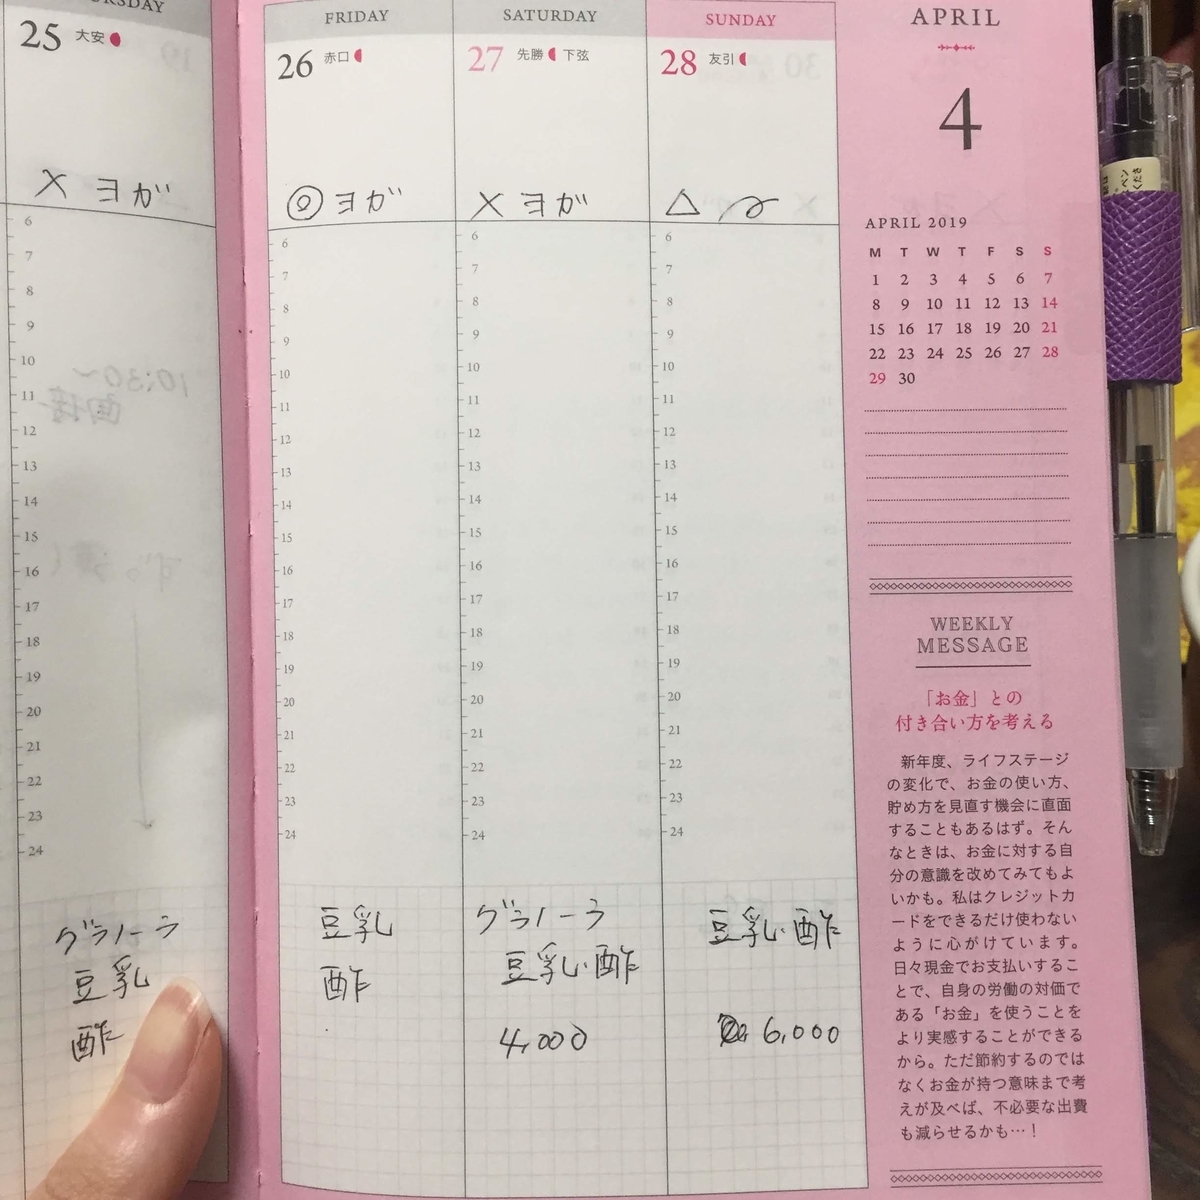 25 大安
× ヨガ
6
7
8
9
10
11
12
13
14
15
16
17
18
19
20
21
22
23
24
グラノーラ
豆乳
酢
FRIDAY
26 赤口
◎ ヨガ
6
7
8
9
10
11
12
13
14
15
16
17
18
19
20
21
22
23
24
豆乳
酢
SATURDAY
27 先勝 下弦
× ヨガ
6
7
8
9
10
11
12
13
14
15
16
17
18
19
20
21
22
23
24
グラノーラ
豆乳・酢
4,000
SUNDAY
28 友引
△
6
7
8
9
10
11
12
13
14
15
16
17
18
19
20
21
22
23
24
豆乳・酢
6,000
APRIL
4
APRIL 2019
M T W T F S S
1 2 3 4 5 6 7
8 9 10 11 12 13 14
15 16 17 18 19 20 21
22 23 24 25 26 27 28
29 30
WEEKLY
MESSAGE
「お金」との
付き合い方を考える
新年度、ライフステージ
の変化で、お金の使い方、
貯め方を見直す機会に直面
することもあるはず。そん
なときは、お金に対する自
分の意識を改めてみてもよ
いかも。私はクレジットカ
ードをできるだけ使わない
ように心がけています。
日々現金でお支払いするこ
とで、自身の労働の対価で
ある「お金」を使うことを
より実感することができる
から。ただ節約するのでは
なくお金が持つ意味まで考
えが及べば、不必要な出費
も減らせるかも…！